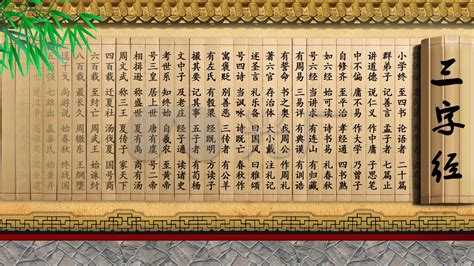 三字经
小学终 至四书 论语者 二十篇
群弟子 记善言 孟子者 七篇止
讲道德 说仁义 作中庸 子思笔
中不偏 庸不易 作大学 乃曾子
自修齐 至平治 孝经通 四书熟
如六经 始可读 诗书易 礼春秋
号六经 当讲求 有连山 有归藏
有周易 三易详 有典谟 有训诰
有誓命 书之奥 我周公 作周礼
著六官 存治体 大小戴 注礼记
述圣言 礼乐备 曰国风 曰雅颂
号四诗 当讽咏 诗既亡 春秋作
寓褒贬 别善恶 三传者 有公羊
有左氏 有彀梁 经既明 方读子
撮其要 记其事 五子者 有荀杨
文中子 及老庄 经子通 读诸史
考世系 知终始 自羲农 至黄帝
号三皇 居上世 唐有虞 号二帝
相揖逊 称盛世 夏有禹 商有汤
周文武 称三王 夏传子 家天下
四百载 迁夏社 汤伐夏 国号商
六百载 至纣亡 周武王 始诛纣
百载 最长久 周辙东 王纲坠
尚游说 始春秋 终战国
七雄出 嬴秦氏 始兼并